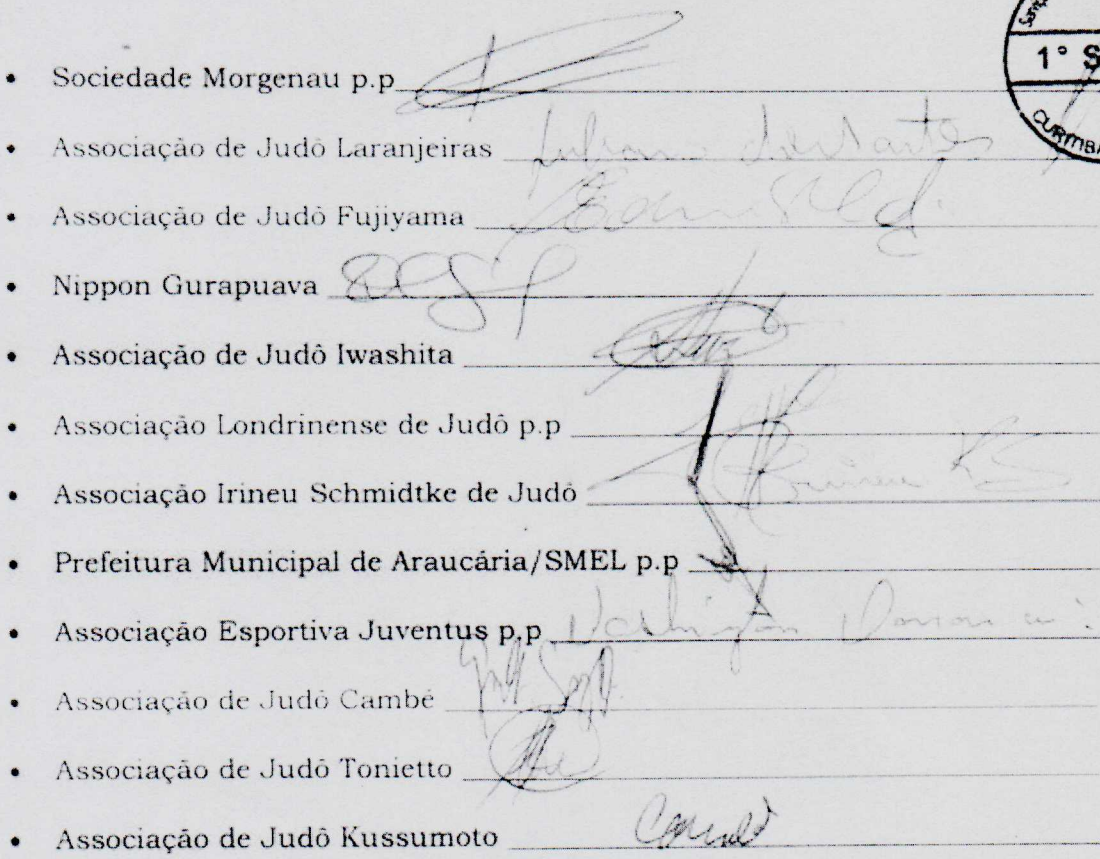 1° S
CURITIBA
• Sociedade Morgenau p.p
• Associação de Judô Laranjeiras
• Associação de Judô Fujiyama
• Nippon Gurapuava
• Associação de Judô Iwashita
• Associação Londrinense de Judô p.p
• Associação Irineu Schmidtke de Judô
• Prefeitura Municipal de Araucária/SMEL p.p
• Associação Esportiva Juventus p.p
• Associação de Judô Cambé
• Associação de Judô Tonietto
• Associação de Judô Kussumoto